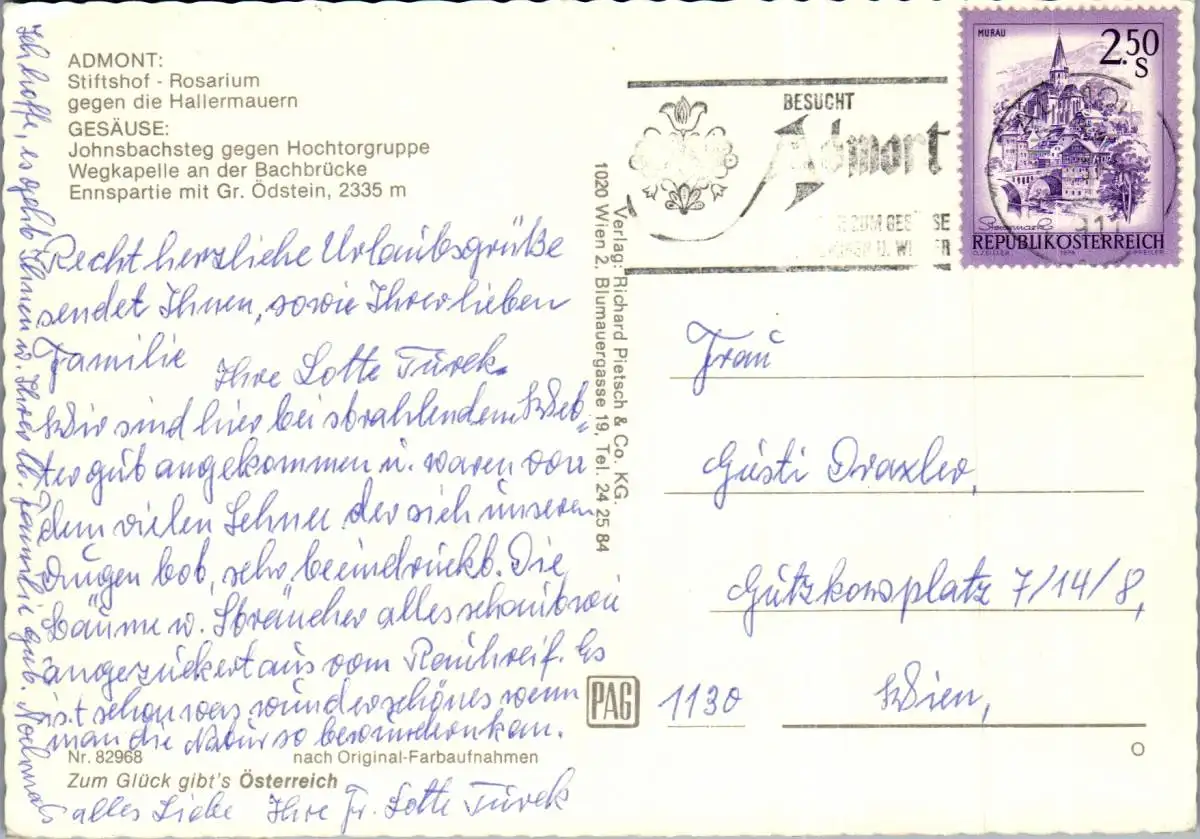 ADMONT:
Stiftshof - Rosarium
gegen die Hallermauern
GESÄUSE:
Johnsbachsteg gegen Hochtorgruppe
Wegkapelle an der Bachbrücke
Ennspartie mit Gr. Ödstein, 2335 m
Recht herzliche Urlaubsgrüße
sendet Ihnen, sowie Ihrer lieben
Familie
Ihre Lotte Turek.
Wir sind hier bei strahlendem Wet„
ter gut angekommen u. waren von
dem vielen Schnee der sich unseren
Augen bot, sehr beeindruckt. Die
Bäume u. Sträucher alles schaut wie
angezuckert aus vom Rauhreif. Es
ist schon was wunderschönes wenn
man die Natur so bewundern kan.
Ich hoffe, es geht Ihnen u. Ihrer lb. Familie gut. Nochmals
alles Liebe Ihre Fr. Lotte Turek
Nr. 82968
nach Original-Farbaufnahmen
Zum Glück gibt's Österreich
Verlag: Richard Pietsch & Co. KG.
1020 Wien 2, Blumauergasse 19, Tel. 24 25 84
PAG
BESUCHT
Admont
ZUM GESÄUSE
U.
MURAU
2.50
S
Steiermark
REPUBLIK ÖSTERREICH
O. ZEILLER
1974
PFEILER
Frau
Gusti Draxler,
Gutzkowplatz 7/14/8,
1130 Wien,